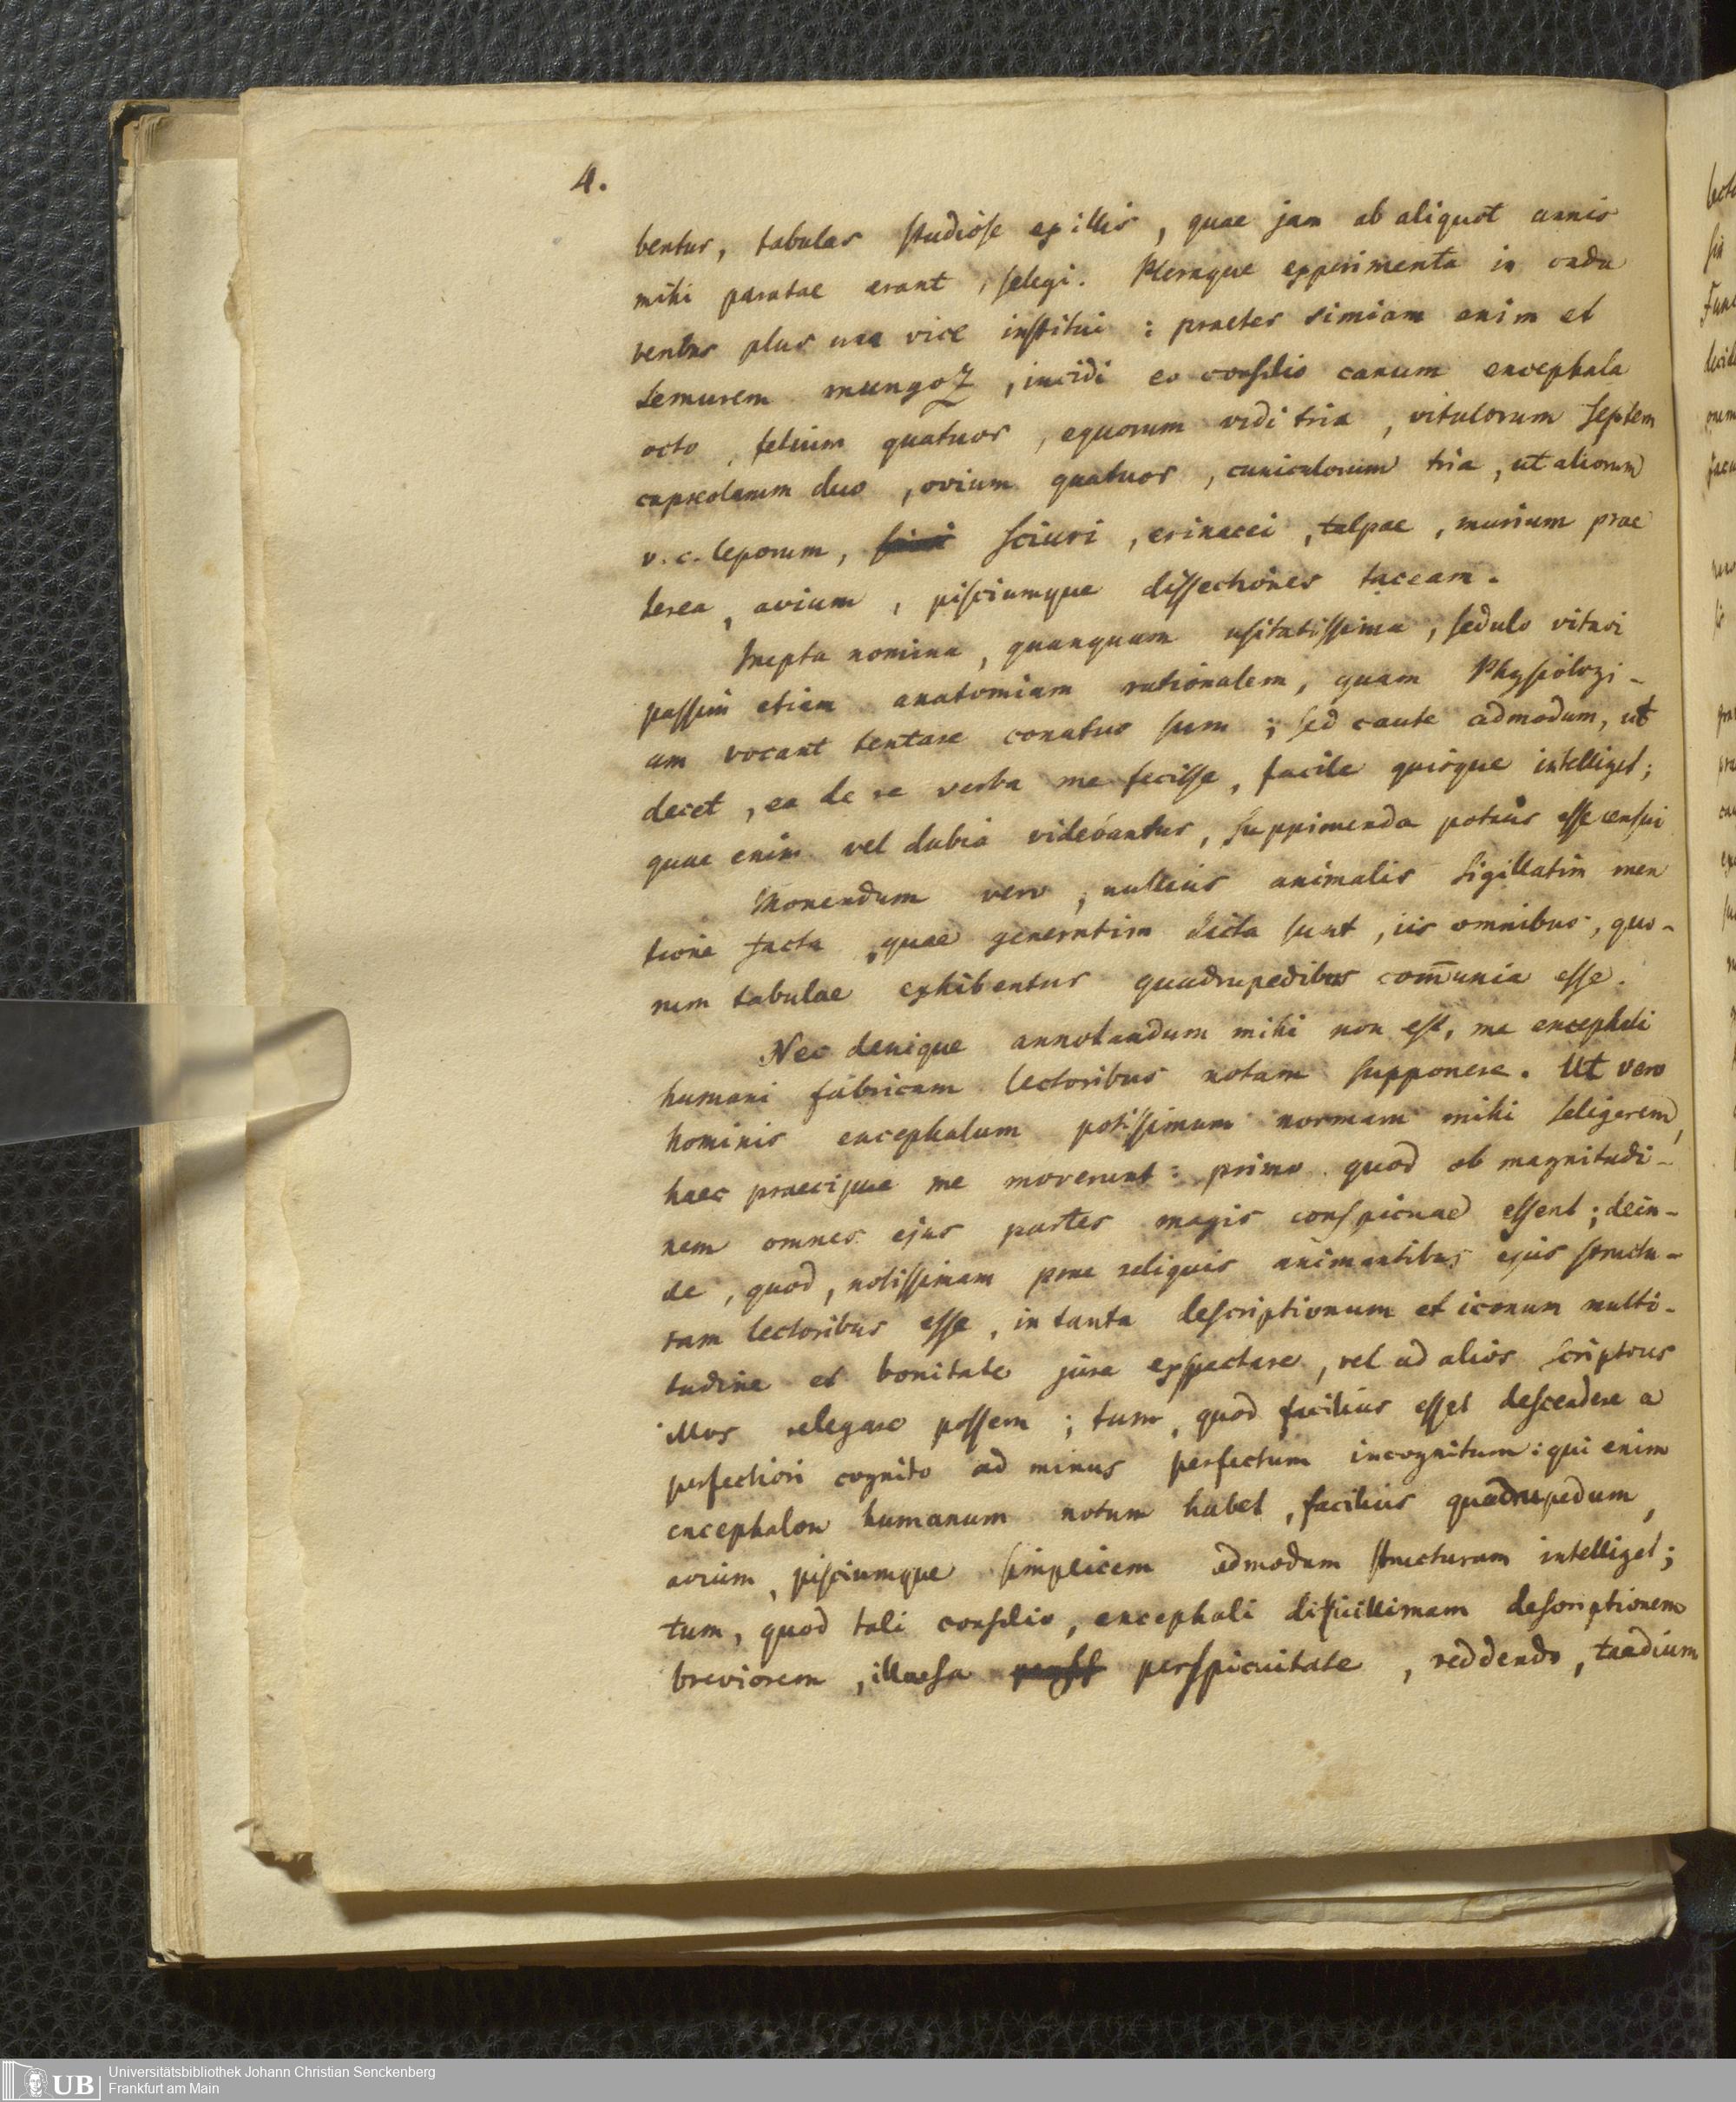 4.
bentur, tabulas studiose ex illis, quae jam ab aliquot annis
mihi paratae erant, selegi. Pleraque experimenta in cada
veribus plus una vice institui: praeter simiam enim et
Lemurem mungoz, incidi eo consilio canum encephala
octo, felium quatuor, equorum vidi tria, vitulorum septem
capreolarum duo, ovium quatuor, cuniculorum tria, ut aliorum
v. c. leporum, sciuri, erinacei, talpae, murium prae
terea, avium, pisciumque dissectiones taceam.
Inepta nomina, quanquam usitatissima, sedulo vitavi
passim etiam anatomiam rationalem, quam Physiologi-
am vocant tentare conatus sum; sed caute admodum, ut
decet, ea de re verba me fecisse, facile quisque intelliget;
quae enim vel dubia videbantur, supprimenda potius esse censui
Monendum vero, nullius animalis sigillatim men
tione facta, quae generatim dicta sunt, iis omnibus, quo-
rum tabulae exhibentur quadrupedibus com̄unia esse.
Nec denique annotandum mihi non est, me encephali
humani fabricam lectoribus notam supponere. Ut vero
hominis encephalum potissimum normam mihi seligerem,
haec praecipue me moverunt: primo quod ob magnitudi-
nem omnes ejus partes magis conspicuae essent; dein-
de, quod, notissimam prae reliquis animantibus ejus structu-
ram lectoribus esse, in tanta descriptionum et iconum multi-
tudine et bonitate jure exspectare, vel ad alios scriptores
illos relegare possem; tum, quod facilius esset descendere a
perfectiori cognito ad minus perfectum incognitum: qui enim
encephalon humanum notum habet, facilius quadrupedum,
avium, pisciumque simplicem admodum structuram intelliget;
tum, quod tali consilio, encephali difficillimam descriptionem
breviorem, illaesa perspicuitate, reddendo, taedium
UB Universitätsbibliothek Johann Christian Senckenberg
Frankfurt am Main